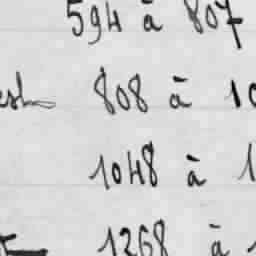 594 à 807
808 à 10
1048 à 1
1268 à 1